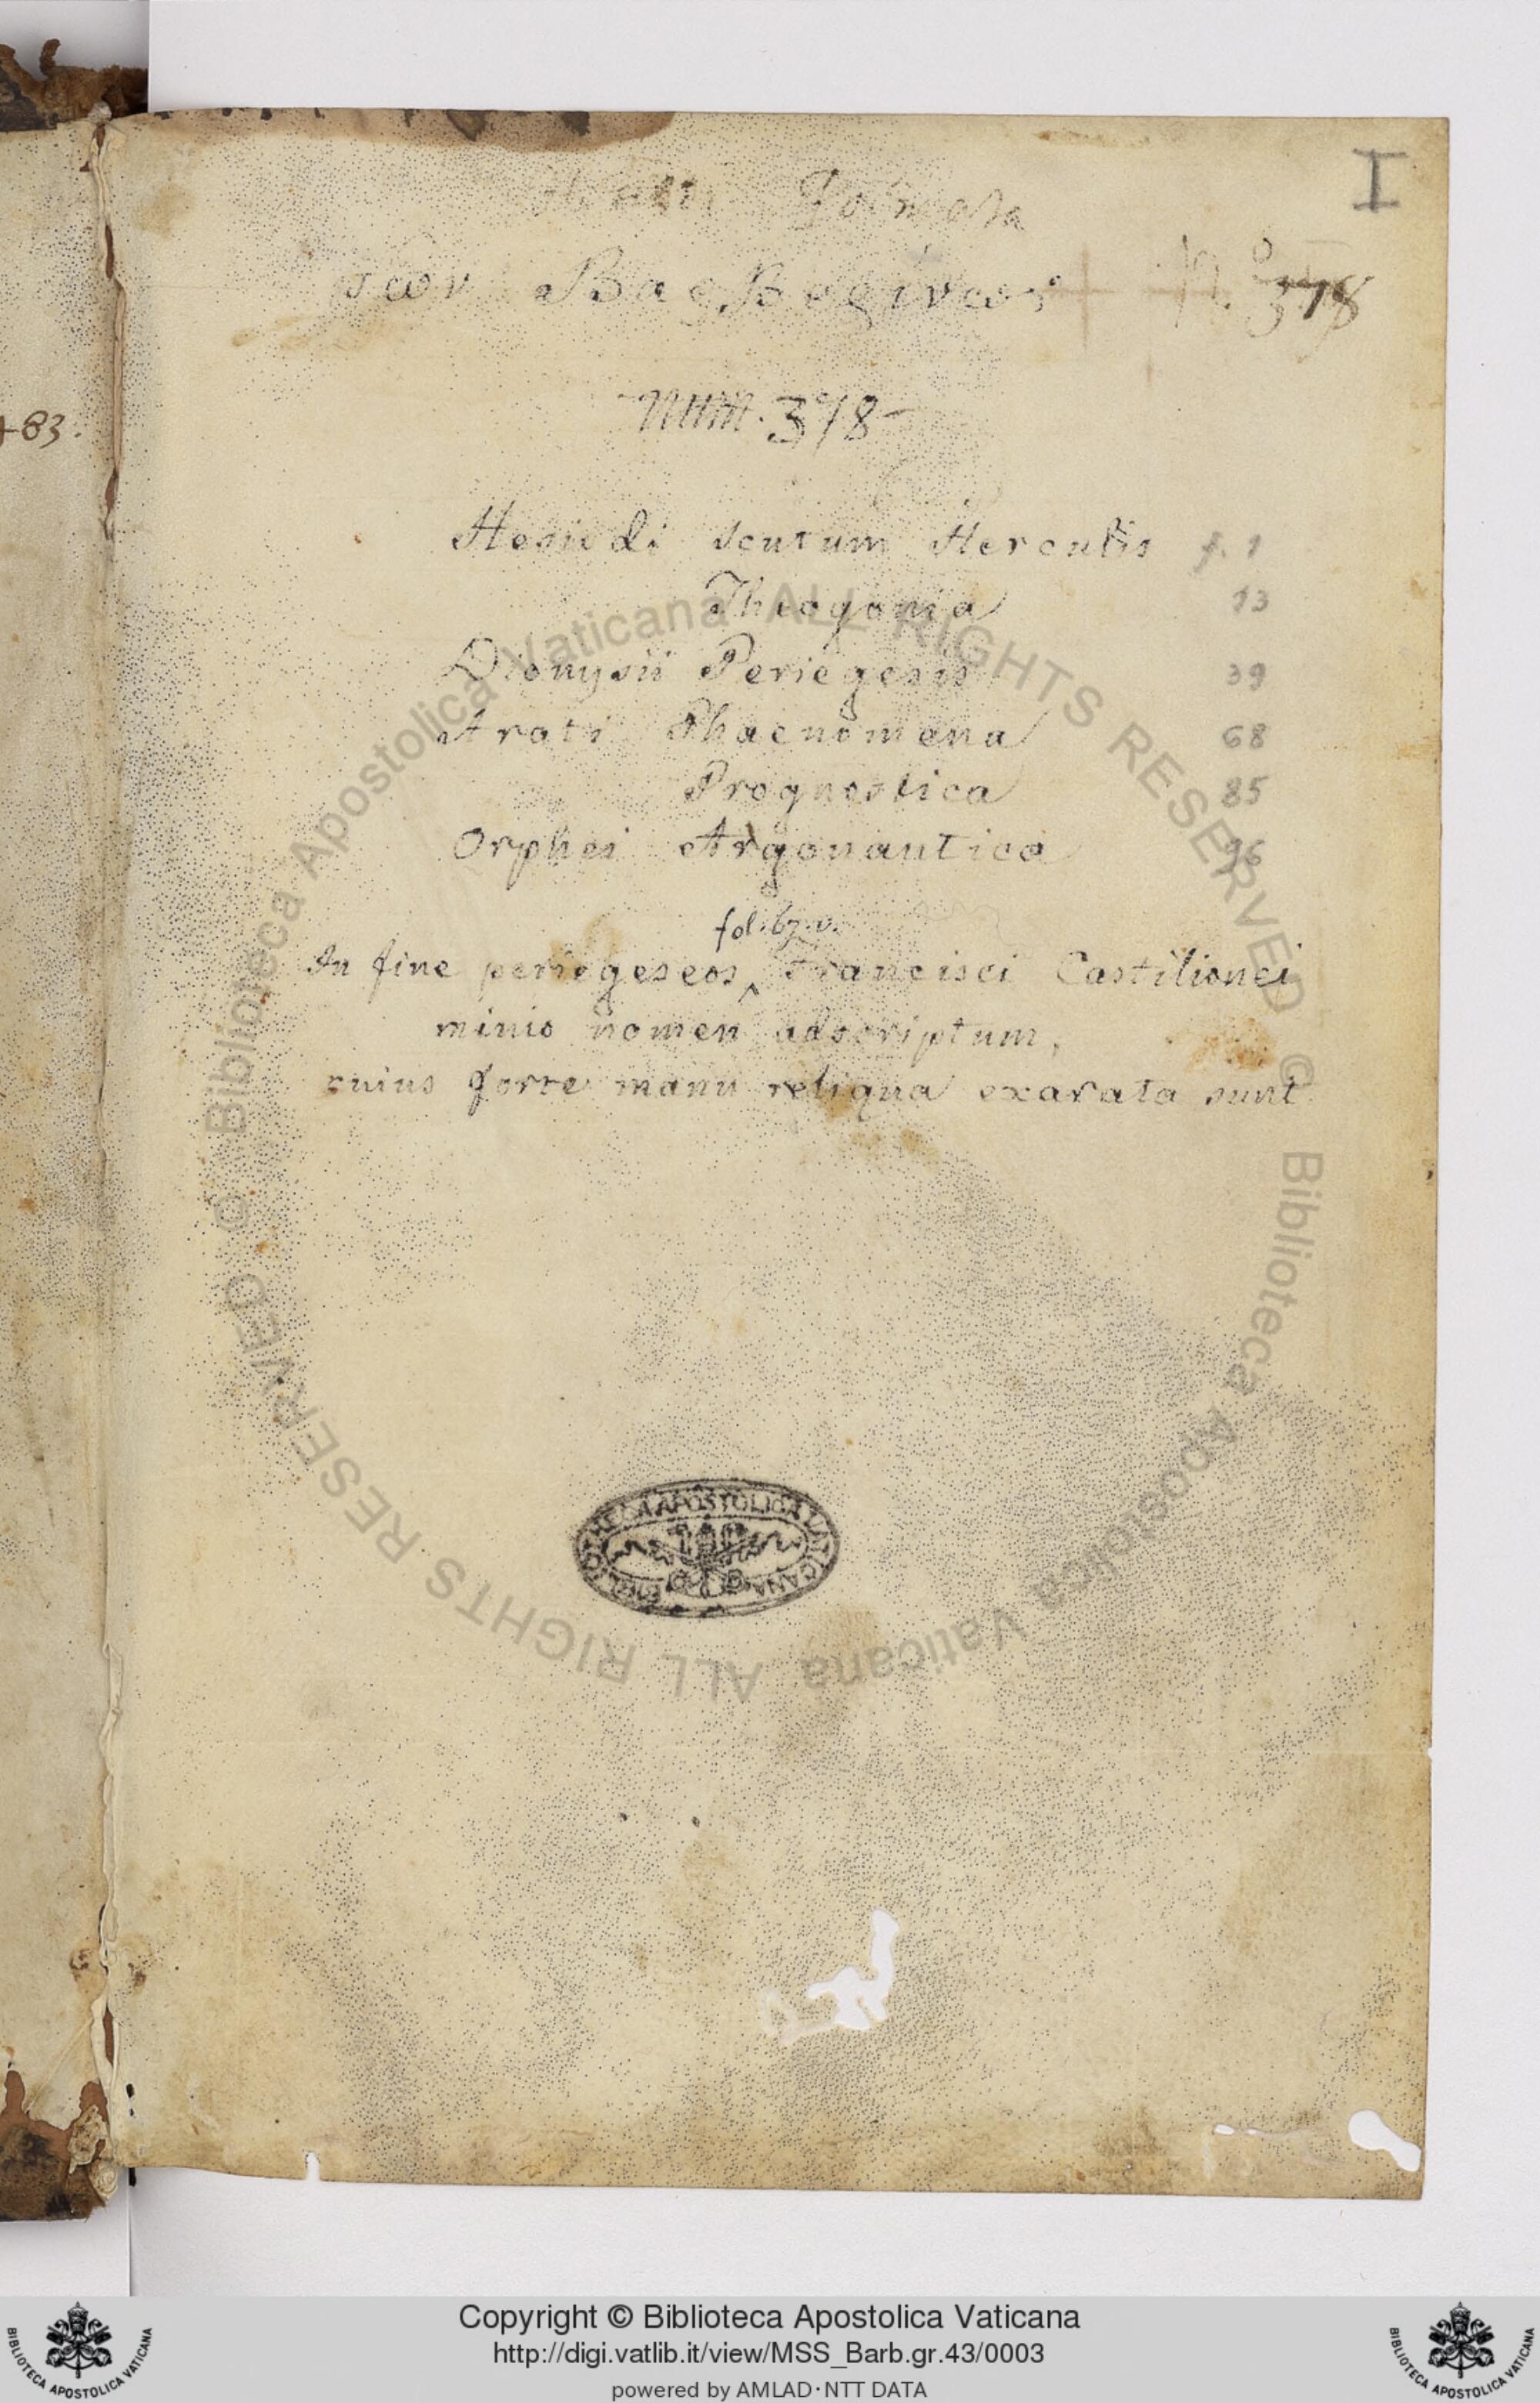 I
τῶν Βαρβερίνων
N.º 378
Num. 378
+83.
Hesiodi scutum Herculis f. 1
Theogonia 13
Dionysii Periegesis 39
Arati Phaenomena 68
Prognostica 85
Orphei Argonautica 96
fol. 67. v.
In fine periegeseos ‸ Francisci Castilionei
minio nomen adscriptum,
cuius forte manu reliqua exarata sunt
BIBLIOTHECA APOSTOLICA VATICANA
© Biblioteca Apostolica Vaticana ALL RIGHTS RESERVED
© Biblioteca Apostolica Vaticana ALL RIGHTS RESERVED
Copyright © Biblioteca Apostolica Vaticana
http://digi.vatlib.it/view/MSS_Barb.gr.43/0003
powered by AMLAD·NTT DATA
BIBLIOTECA APOSTOLICA VATICANA
BIBLIOTECA APOSTOLICA VATICANA